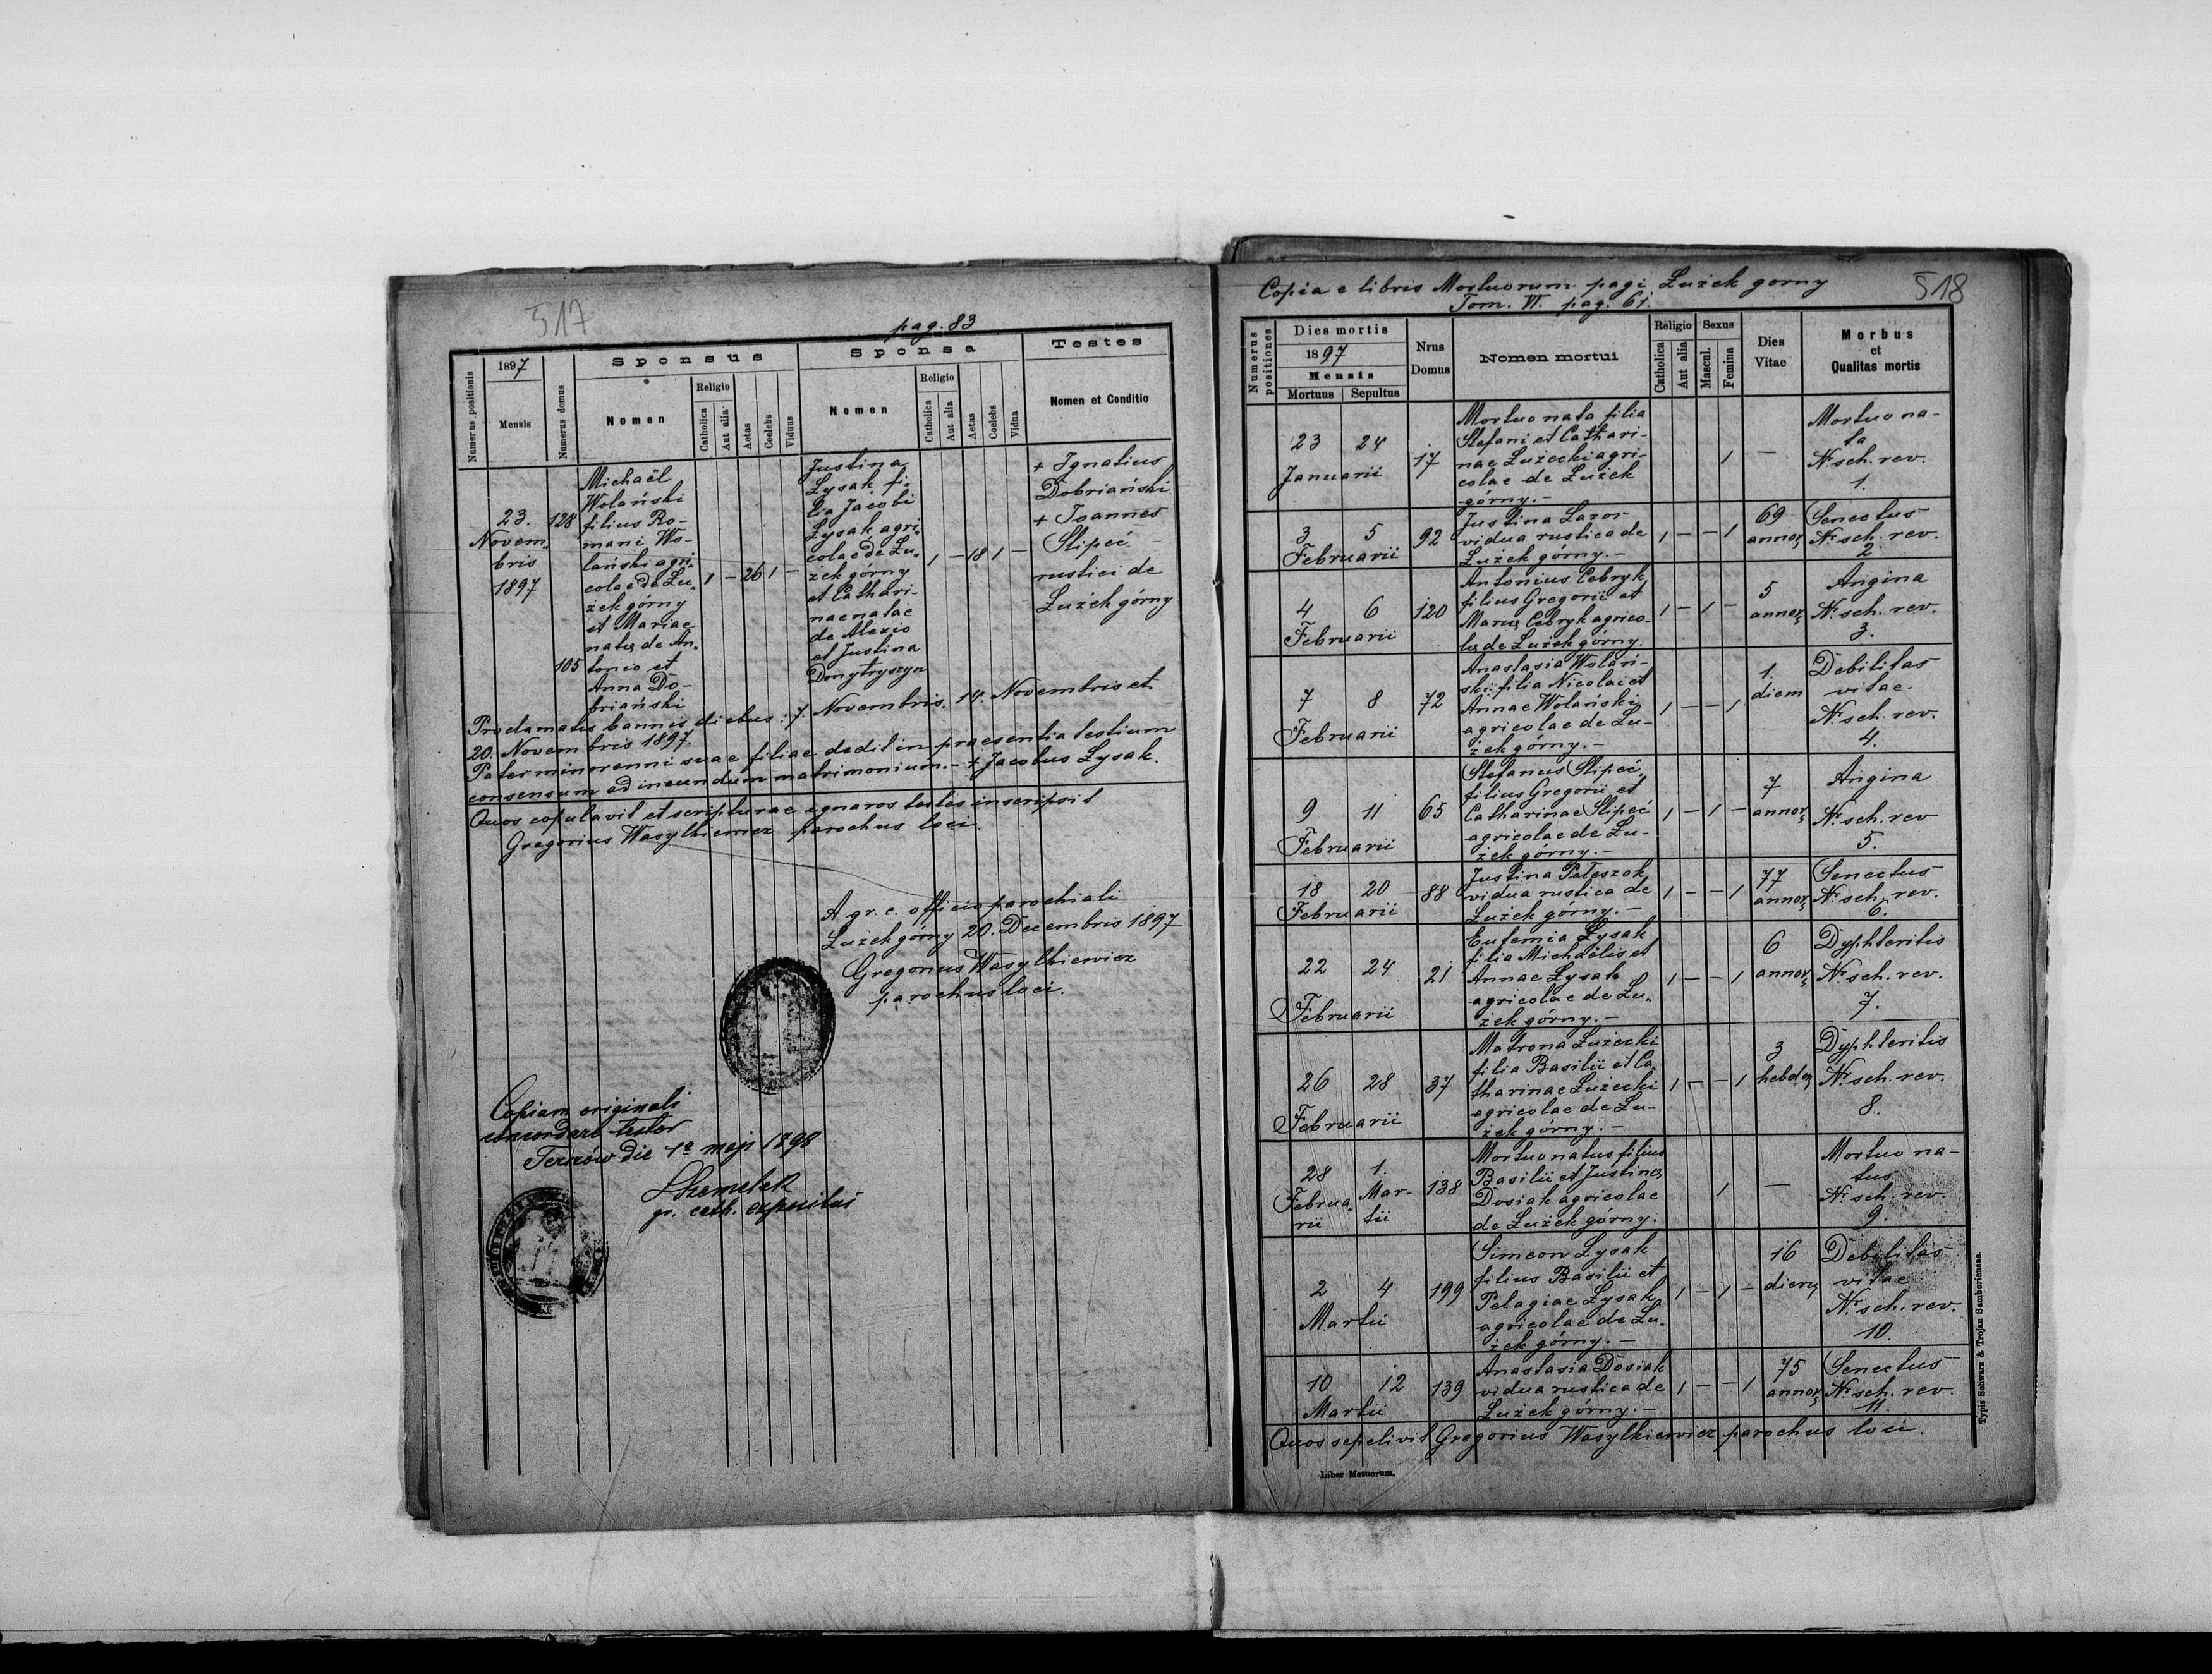 517
pag. 83
Numerus positionis
1897
Mensis
Numerus domus
Sponsus
Nomen
Religio
Catholica
Aut alia
Aetas
Coelebs
Viduus
Sponsa
Nomen
Religio
Catholica
Aut alia
Aetas
Coelebs
Vidua
Testes
Nomen et Conditio
23.
Novem„
bris
1897
128
105
Michaël
Wolański
filius Ro-
mani Wo-
lański agri„
colae de Łu„
żek górny
et Mariae
natae de An„
tonio et
Anna Do-
briański
1 — 26 1 —
Justina
Łysak fi„
lia Jacobi
Łysak agri„
colae de Łu„
żek górny
et Cathari-
nae natae
de Alexio
et Justina
Donytryszyn
1 — 18 1 —
+ Ignatius
Dobriański
+ Joannes
Slipeć —
rustici de
Łużek górny
Proclamatis bannis diebus: 7. Novembris, 14. Novembris et
20. Novembris 1897.
Pater minorenni suae filiae dedit in praesentia testium
consensum ad ineundum matrimonium. — + Jacobus Łysak.
Quos copulavit et scripturae ignaros testes inscripsit
Gregorius Wasylkiewicz parochus loci.
A gr. c. officio parochiali
Łużek górny 20. Decembris 1897
Gregorius Wasylkiewicz
parochus loci.
Copiam originali
concordare testor
die 1a maji 1898
gr. cath. expositus
518
Copia e libris Mortuorum pagi Łużek gorny
Tom. VI. pag. 61.
Numerus positiones
Dies mortis
1897
Mensis
Mortuus
Sepultus
Nrus
Domus
Nomen mortui
Religio
Catholica
Aut alia
Sexus
Mascul.
Femina
Dies
Vitae
Morbus
et
Qualitas mortis
23 24
Januarii
17
Mortuo nata filia
Stefani et Cathari-
nae Łużecki agri-
colae de Łużek
górny. —
1
—
Mortuo na-
ta
Nr sch. rev.
1.
3 5
Februarii
92
Justina Lazor
vidua rustica de
Łużek górny. —
1 — — 1
69
annor
Senectus
Nr sch. rev.
2.
4 6
Februarii
120
Antonius Cebryk
filius Gregorii et
Mariae Cebryk agrico-
lae de Łużek górny.
1 — 1 —
5
annor
Angina
Nr sch. rev.
3.
7 8
Februarii
72
Anastasia Wolań-
ski filia Nicolai et
Annae Wolański
agricolae de Łu-
żek górny. —
1 — — 1
1.
diem
Debilitas
vitae.
Nr sch. rev.
4.
9 11
Februarii
65
Stefanus Slipeć
filius Gregorii et
Catharinae Slipeć
agricolae de Łu-
żek górny. —
1 — 1 —
7
annor
Angina
Nr sch. rev
5.
18 20
Februarii
88
Justina
vidua rustica de
Łużek górny. —
1 — — 1
77
annor
Senectus
Nr sch. rev.
6.
22 24
Februarii
21
Eufemia Łysak
filia Michaëlis et
Annae Łysak
agricolae de Łu„
żek górny. —
1 — — 1
6
annor
Dyphteritis
Nr sch. rev.
7.
26 28
Februarii
37
Matrona Łużecki
filia Basilii et Ca„
tharinae Łużecki
agricolae de Łu-
żek górny. —
1 — — 1
3
hebdo
Dyphteritis
Nr sch. rev.
8.
28 1.
Februa„ Mar-
rii tii
138
Mortuo natus filius
Basilii et Justinae
Dosiak agricolae
de Łużek górny.
1
—
Mortuo na-
tus
Nr sch. rev.
9.
2 4
Martii
199
Simeon Łysak
filius Basilii et
Pelagiae Łysak
agricolae de Łu„
żek górny. —
1 — 1 —
16
dieru
Debilitas
vitae
Nr sch. rev.
10.
10 12
Martii
139
Anastasia Dosiak
vidua rustica de
Łużek górny. —
1 — — 1
75
annor
Senectus
Nr sch. rev.
11.
Quos sepelivit Gregorius Wasylkiewicz parochus loci.
Liber Motuorum.
Typis Schwarz & Trojan Samboriensae.